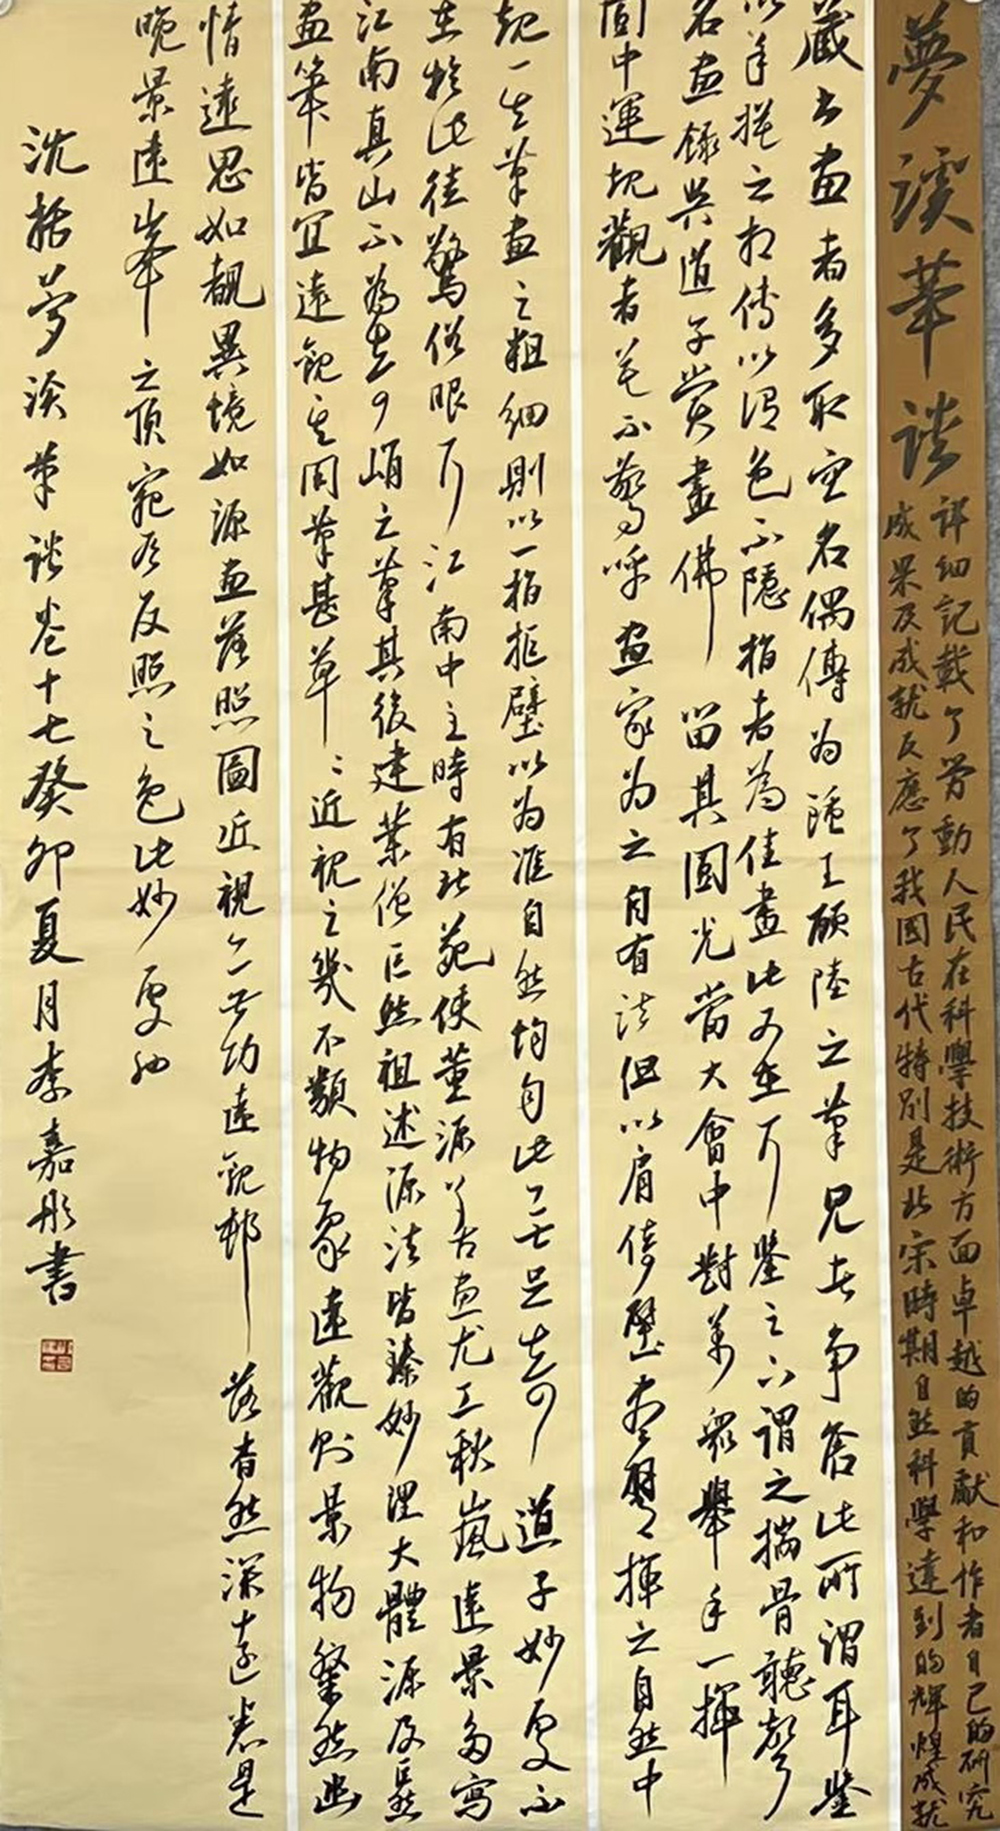 夢溪筆談
詳細記載了勞動人民在科學技術方面卓越的貢獻和作者自己的研究
成果及成就反應了我國古代特別是北宋時期自然科學達到的輝煌成就
藏書畫者多取空名偶傳為鍾王顧陸之筆見者爭售此所謂耳鑒
以手摸之相傳以謂色不隱指者為佳畫此又在耳鑒之下謂之揣骨聽聲
名畫錄吳道子嘗畫佛留其圓光當大會中對萬眾舉手一揮
圓中運規觀者莫不驚呼畫家為之自有法但以肩倚壁盡臂揮之自然中
規一筆畫之粗細則以一指拒壁以為準自然均勻此無足奇道子妙處不
在於此徒驚俗眼耳江南中主時有北苑使董源善畫尤工秋嵐遠景多寫
江南真山不為奇峭之筆其後建業僧巨然祖述源法皆臻妙理大體源及巨然
畫筆皆宜遠觀其用筆甚草草近視之幾不類物象遠觀則景物粲然幽
情遠思如覩異境如源畫落照圖近視無功遠觀村落杳然深遠悉是
晚景遠峯之頂宛有反照之色此妙處也
沈括夢溪筆談卷十七癸卯夏月李嘉彤書